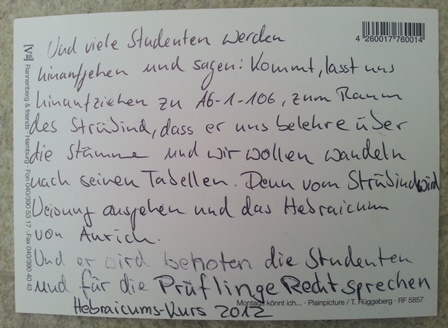 4 260017 760014
Und viele Studenten werden
hinaufgehen und sagen: Kommt, lasst uns
hinaufziehen zu A6-1-106, zum Raum
des Strädind, dass er uns belehre über
die Stämme und wir wollen wandeln
nach seinen Tabellen. Denn vom Sträbind wird
Weisung ausgehen und das Hebraicum
von Aurich.
Und er wird die Studenten
und für die Prüflinge Recht sprechen
Hebraicums-Kurs 2012
Montags könnt ich... · Plainpicture / T. Rüggeberg · RF 5857
Rannenberg & friends · Hamburg · Fon 040/390 53 17 · Fax 040/390 40 43